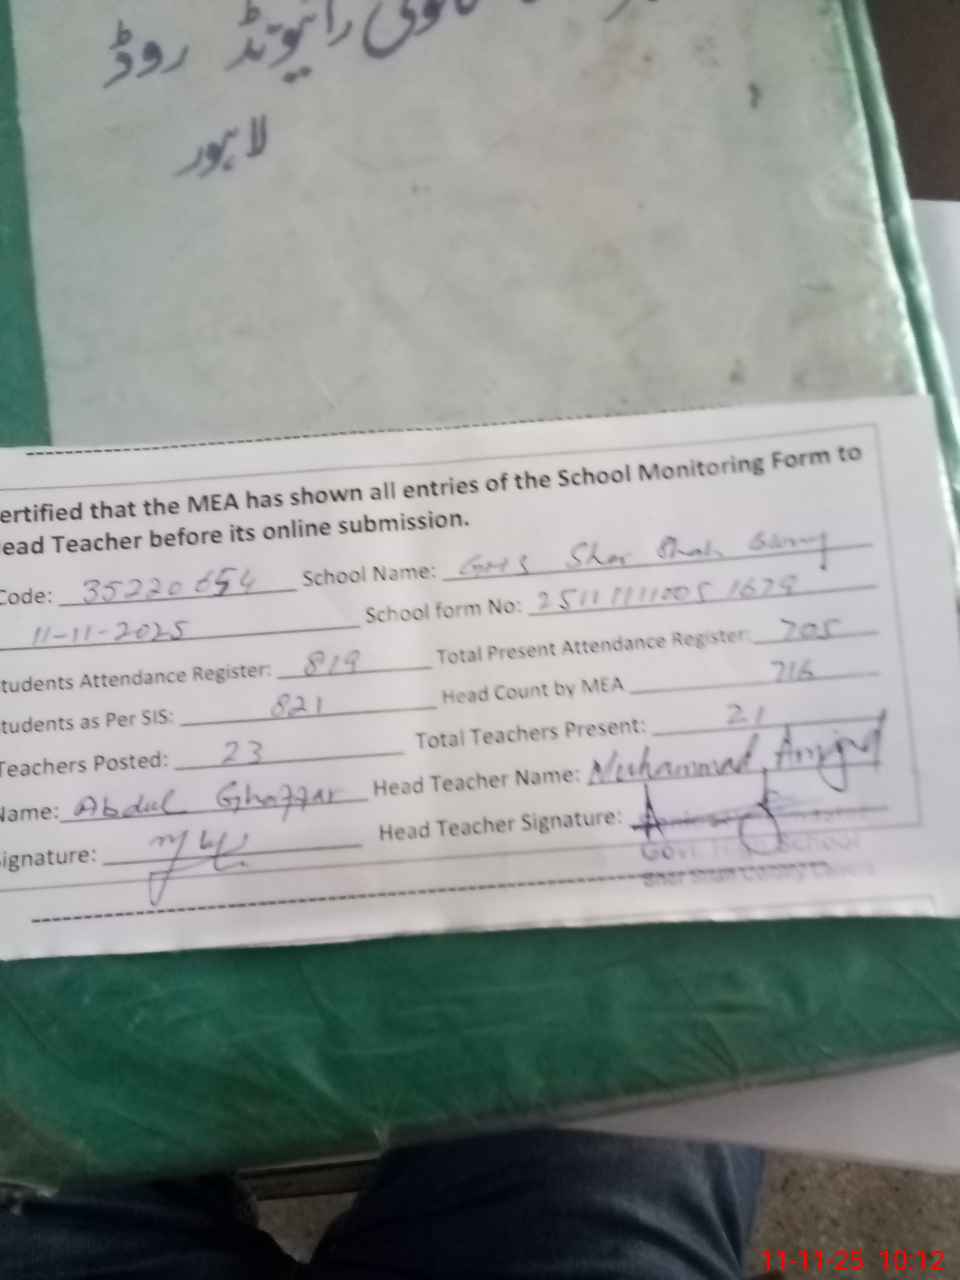 رائیونڈ روڈ
لاہور
ertified that the MEA has shown all entries of the School Monitoring Form to
ead Teacher before its online submission.
Code: 35220654 School Name: GHS Sher Shah
11-11-2025 School form No: 2511111005 1629
tudents Attendance Register: 819 Total Present Attendance Register: 705
tudents as Per SIS: 821 Head Count by MEA 716
Teachers Posted: 23 Total Teachers Present: 21
Name: Abdul Ghaffar Head Teacher Name: Muhammad Amjad
ignature: Head Teacher Signature:
Govt. High School
Sher Shah Colony
11-11-25 10:12